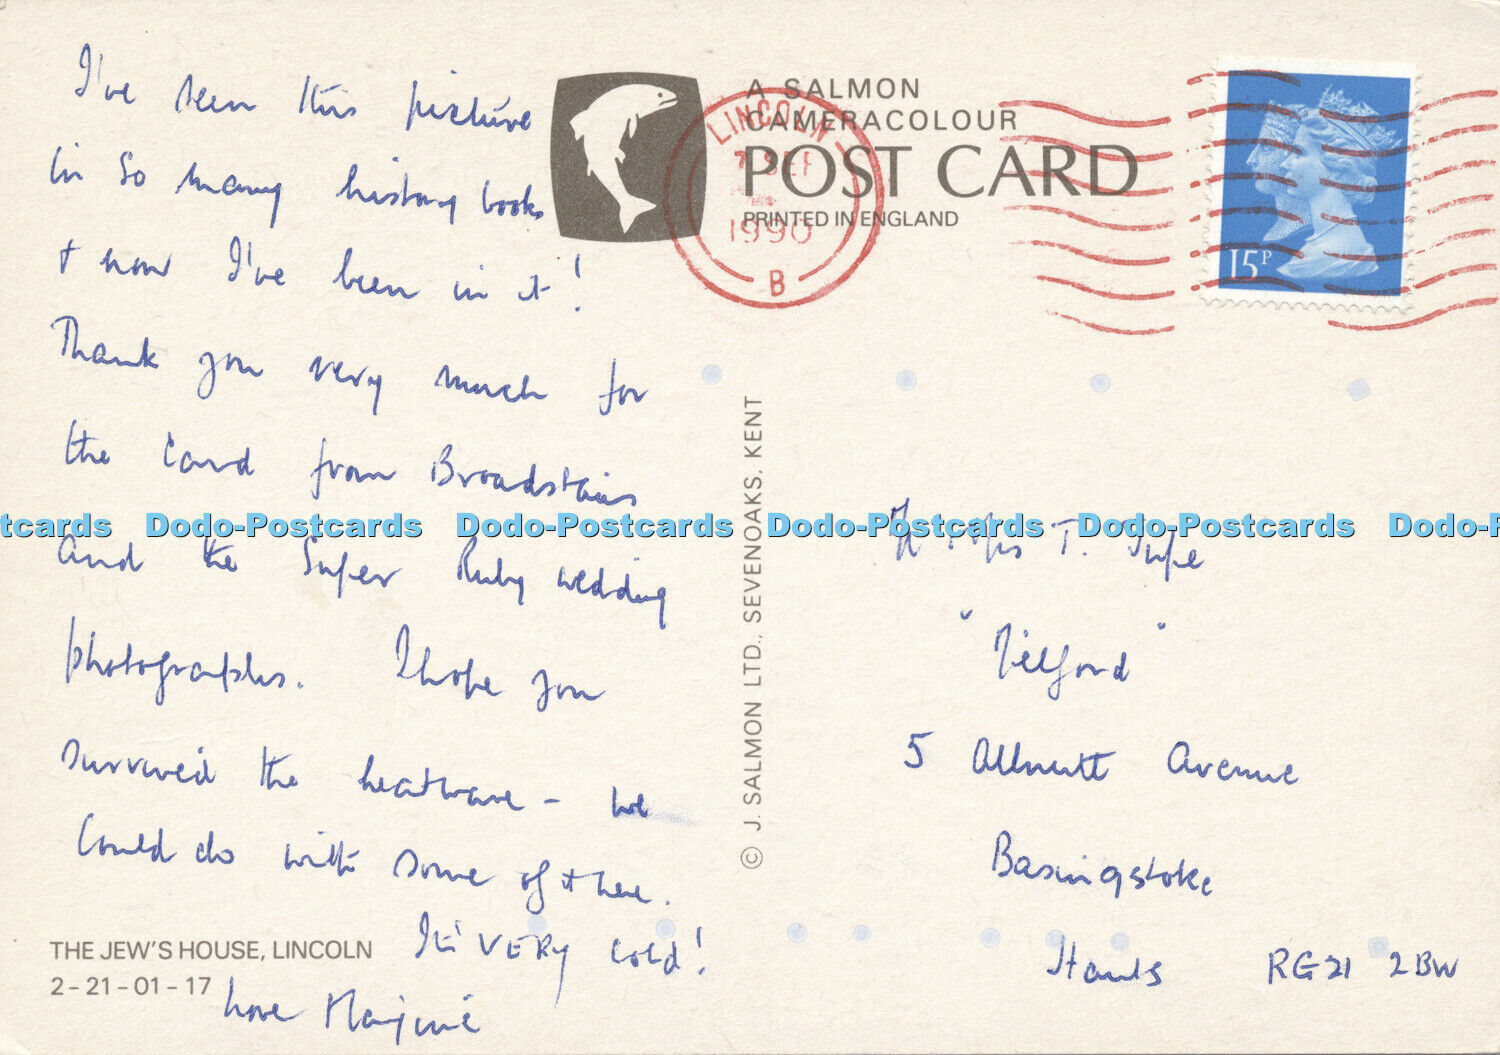 I've seen this picture
in so many history books
+ now I've been in it!
Thank you very much for
the card from Broadstairs
and the super Ruby wedding
photographs. I hope you
survived the heatwave – we
could do with some of it here.
It's VERY cold!
love Marjorie
THE JEW'S HOUSE, LINCOLN
2-21-01-17
A SALMON
CAMERACOLOUR
POST CARD
PRINTED IN ENGLAND
LINCOLN
7 SEP
1990
B
15P
© J. SALMON LTD., SEVENOAKS, KENT
Dodo-Postcards Dodo-Postcards Dodo-Postcards Dodo-Postcards
T.
5 Allnutt Avenue
Basingstoke
Hants RG21 2BW